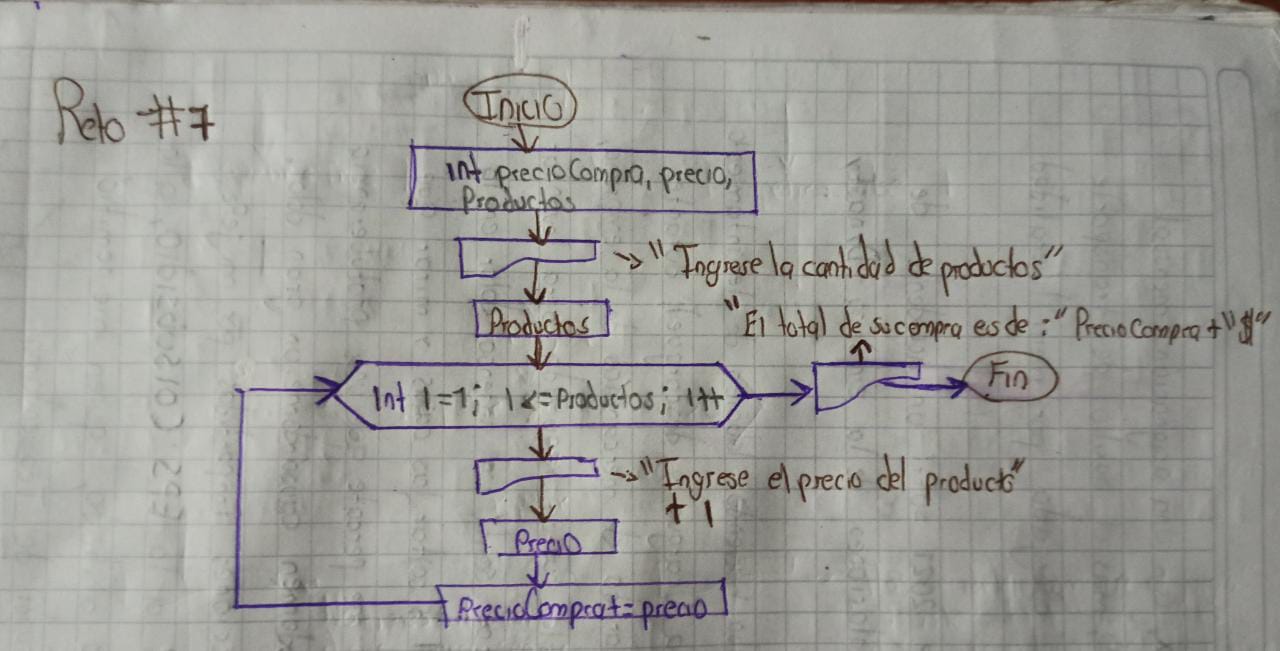 Reto #7
Inicio
Int precioCompra, precio,
Productos
"Ingrese la cantidad de productos"
Productos
"El total de su compra es de :" PrecioCompra + "$"
Int I=1; I<=Productos; I++
Fin
"Ingrese el precio del producto"
+ I
Precio
PrecioCompra+=precio